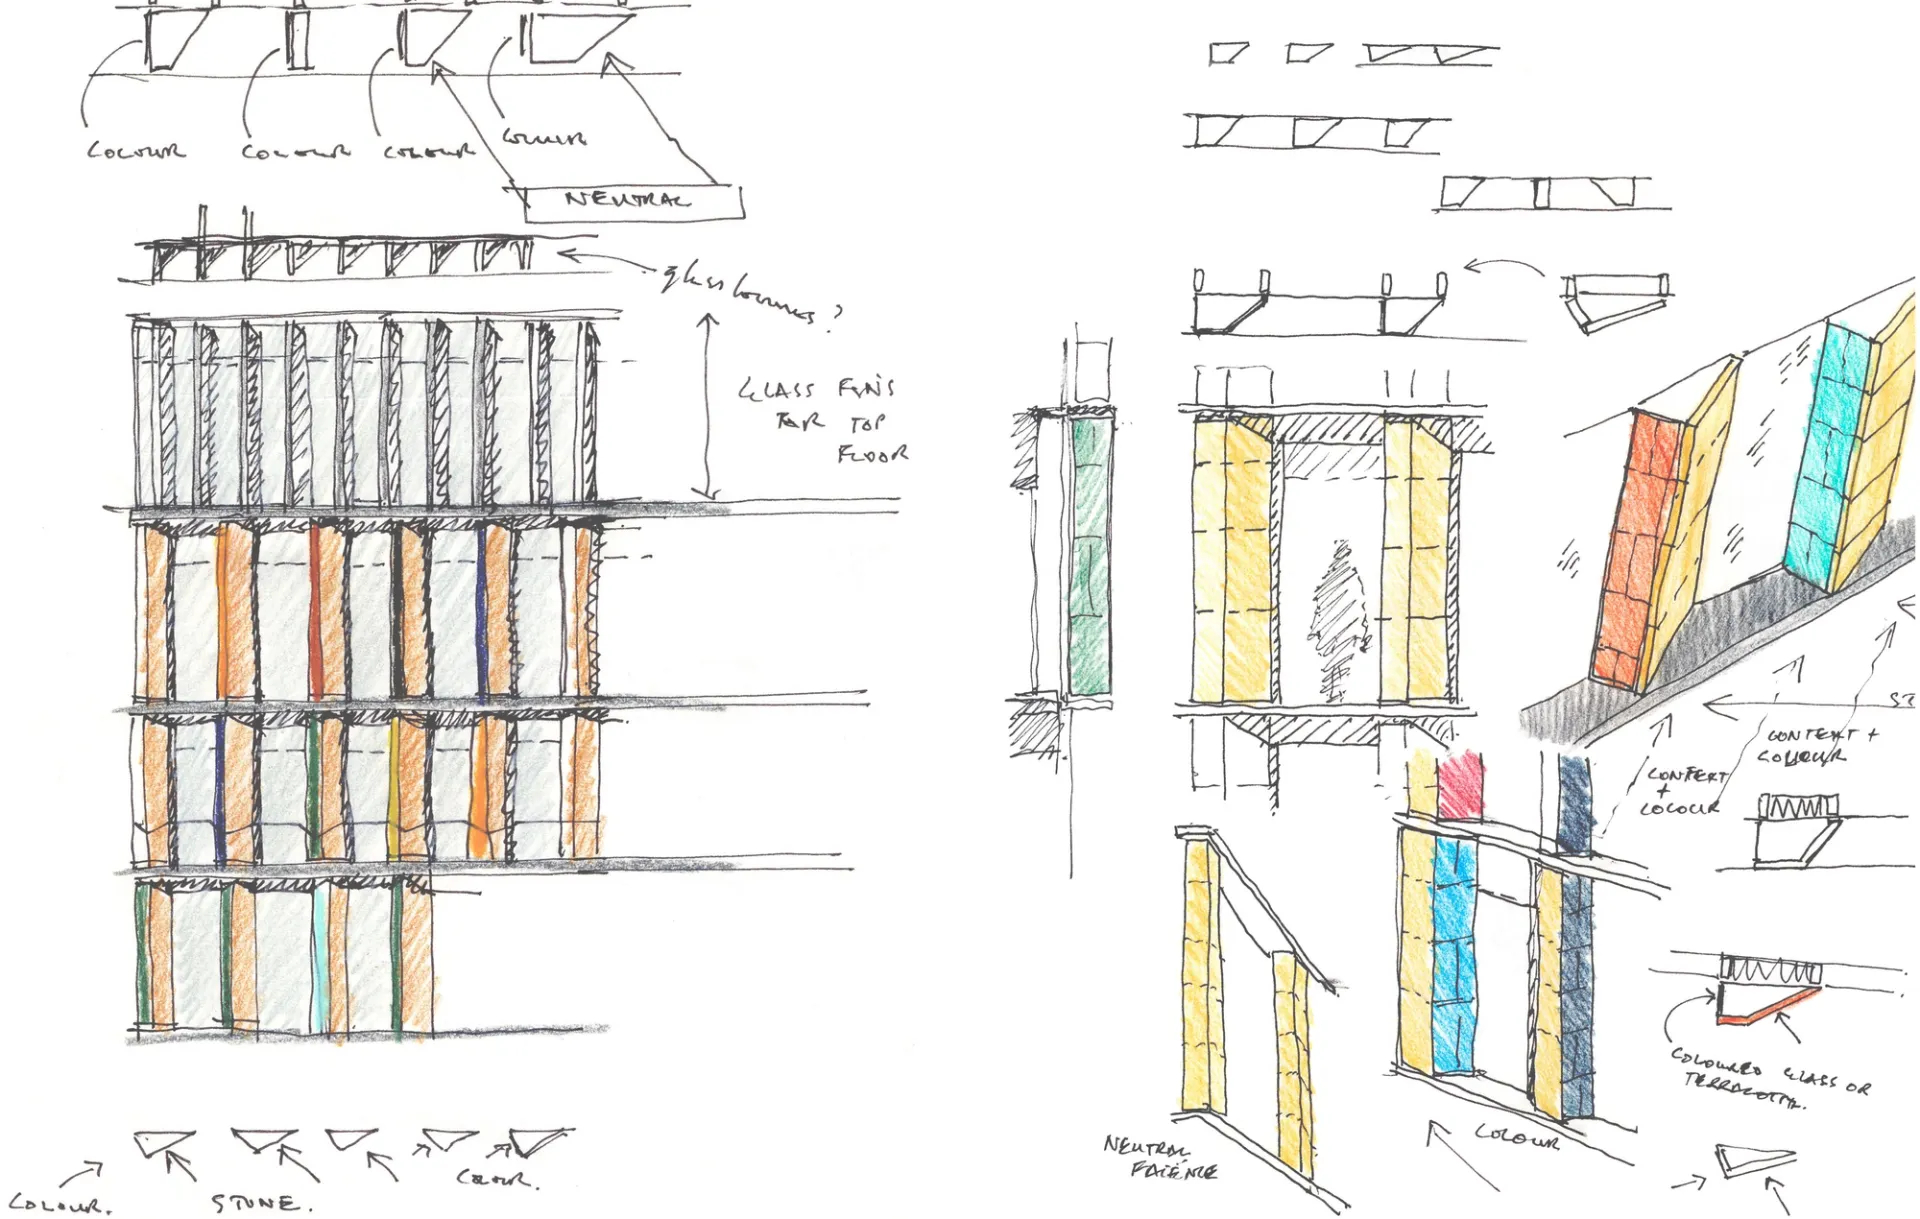 COLOUR
COLOUR
COLOUR
COLOUR
NEUTRAL
glass louvres?
GLASS FINS
FOR TOP
FLOOR
CONTEXT +
COLOUR
CONTEXT
+
COLOUR
COLOURED GLASS OR
TERRACOTTA.
NEUTRAL
FAIENCE
COLOUR
COLOUR.
STONE.
COLOUR.